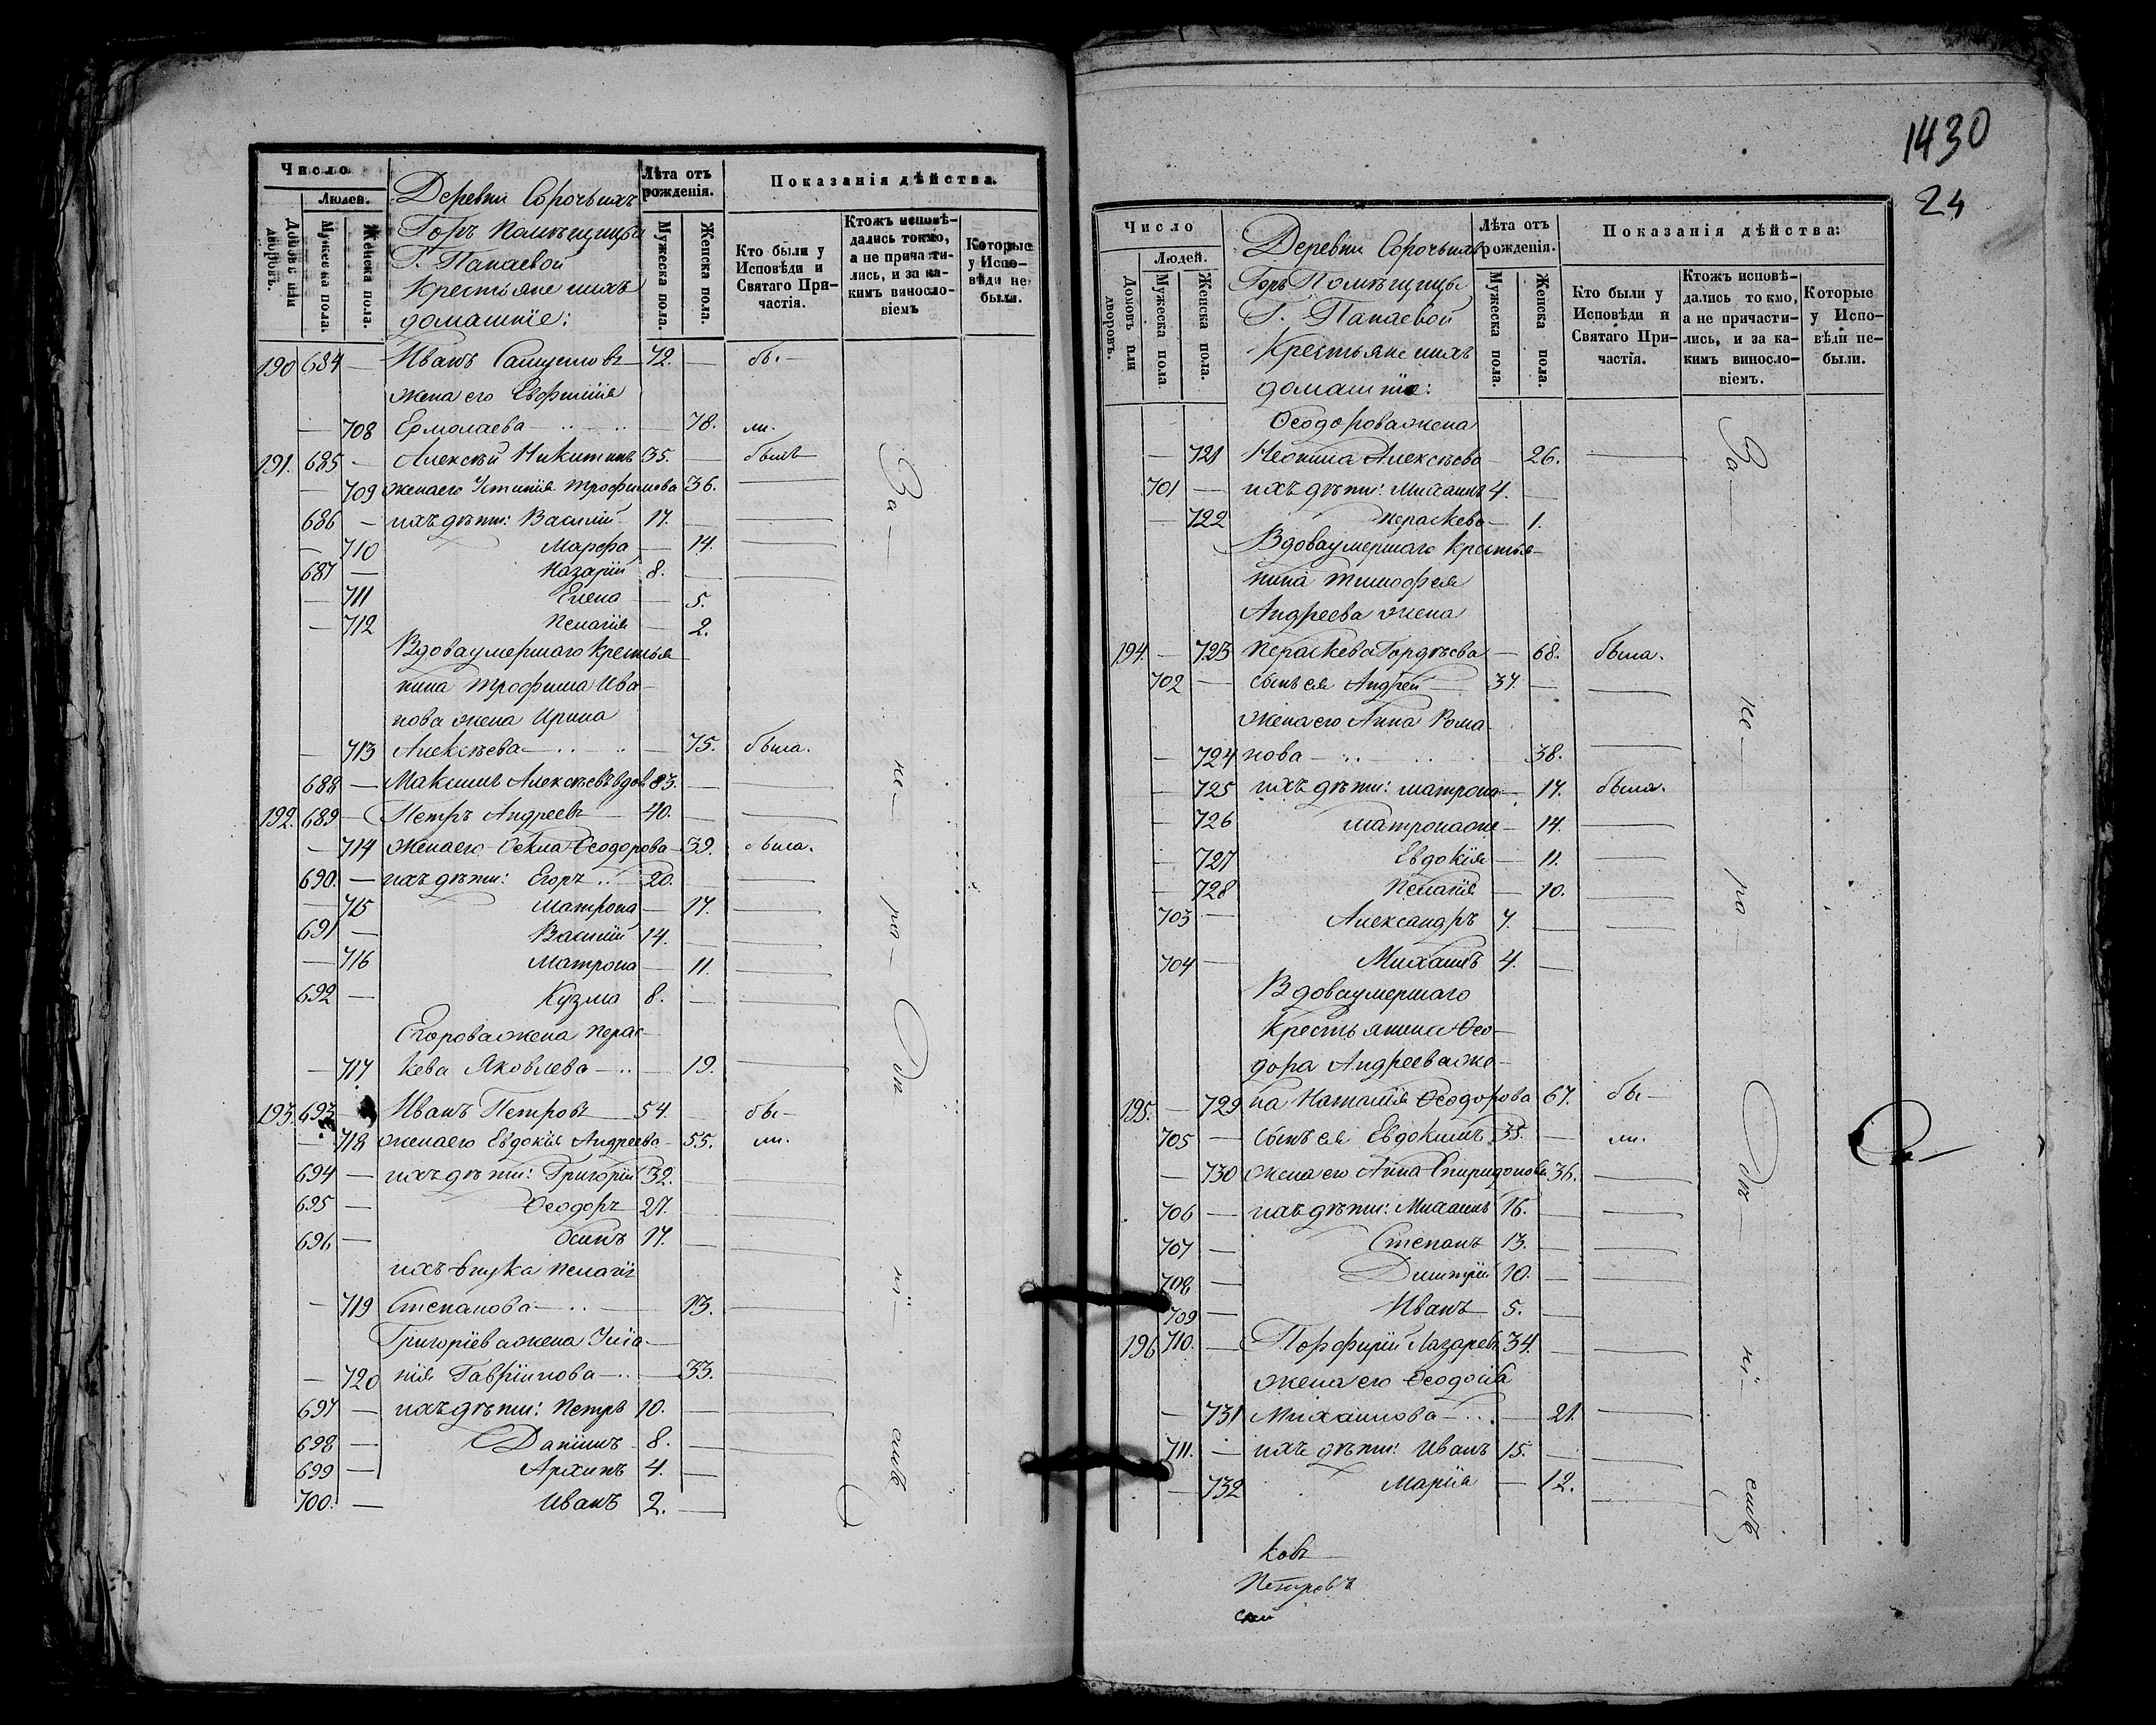 Число.
Людей.
Домовъ или дворовъ.
Мужеска пола.
Женска пола.
Деревни Сорочьихъ
Горъ Помѣщицы
Г. Панаевой
Крестьяне ихъ
домашніе:
Лѣта отъ рожденія.
Мужеска пола.
Женска пола.
Показанія дѣйства.
Кто были у Исповѣди и Святаго Причастія.
Ктожъ исповѣдались токмо, а не причастились, и за какимъ винословіемъ
Которые у Исповѣди не были.
190 684 — Иванъ 72. — бы —
жена его Евфимія
— 708 Ермолаева — 78. ли.
191. 685 — Алексѣй Никитинъ 35. — были
— 709 жена его Устинія Трофимова 36.
686 — ихъ дѣти: Василій 17. —
— 710 Марфа — 14.
687 — Назарій 8. —
— 711 Елена — 5.
— 712 Пелагія — 2.
Вдова умершаго крестья
нина Трофима Ива—
нова жена Ирина
— 713 Алексѣева — 75. была.
688 — Максимъ Алексѣевъ вдов 83. —
192. 689 — Петръ Андреевъ — 40. —
— 714 жена его Фекла Ѳеодорова — 39. была.
690. — ихъ дѣти: Егоръ — 20. —
— 715 Матрона — 17.
691 — Василій 14. —
— 716 Матрона — 11.
692 — Кузма 8. —
Егорова жена Перас—
— 717 кева Яковлева — 19.
193. 693 — Иванъ Петровъ — 54. — бы —
— 718 жена его Евдокія Андреева — 55. ли.
694 — ихъ дѣти: Григорій 32. —
695 — Ѳеодоръ 27. —
696 — Осипъ 17. —
ихъ внука Пелагія
— 719 Степанова — 13.
Григоріева жена Улїа—
— 720 нія Гавріилова — 33.
697 — ихъ дѣти: Петръ 10. —
698 — Даніилъ 8. —
699 — Архипъ 4. —
700. — Иванъ 2. —
За —
не —
ро —
1430
24
Число
Людей.
Домовъ или дворовъ.
Мужеска пола
Женска пола.
Деревни Сорочьихъ
Горъ Помѣщицы
Г. Панаевой
Крестьяне ихъ
домашніе:
Лѣта отъ рожденія.
Мужеска пола.
Женска пола.
Показанія дѣйства:
Кто были у Исповѣди и Святаго Причастія.
Ктожъ исповѣдались токмо, а не причастились, и за какимъ винословіемъ.
Которые у Исповѣди не были.
Ѳеодорова жена
— 721 Неонила Алексѣева — 26.
701 — ихъ дѣти: Михаилъ 4. —
— 722 Пераскева — 1.
Вдова умершаго крестья—
нина Тимофея
Андреева жена
194. — 723 Пераскева Гордѣева — 68. была.
702 — сынъ ея Андрей — 37. —
жена его Анна Рома
— 724 нова — 38.
— 725 ихъ дѣти: Матрона — 17. была.
— 726 Матрона же — 14.
— 727 Евдокія — 11.
— 728 Пелагія — 10.
703 — Александръ 7. —
704 — Михаилъ 4. —
Вдова умершаго
Крестьянина Ѳео—
дора Андреева же—
195. — 729 на Наталія Ѳеодорова 67. бы —
705 — сынъ ея Евдокимъ 35. — ли.
— 730 жена его Анна Спиридонова 36.
706 — ихъ дѣти: Михаилъ 16. —
707 — Степанъ 13. —
708 — Дмитрій 10. —
709 — Иванъ — 5. —
196 710. — Порфирій Лазаревъ 34. —
жена его Ѳеодосія
— 731 Михаилова — 21.
711. — ихъ дѣти: Иванъ 15. —
— 732 Марія — 12.
За —
не —
ро —
ковъ
Петровъ